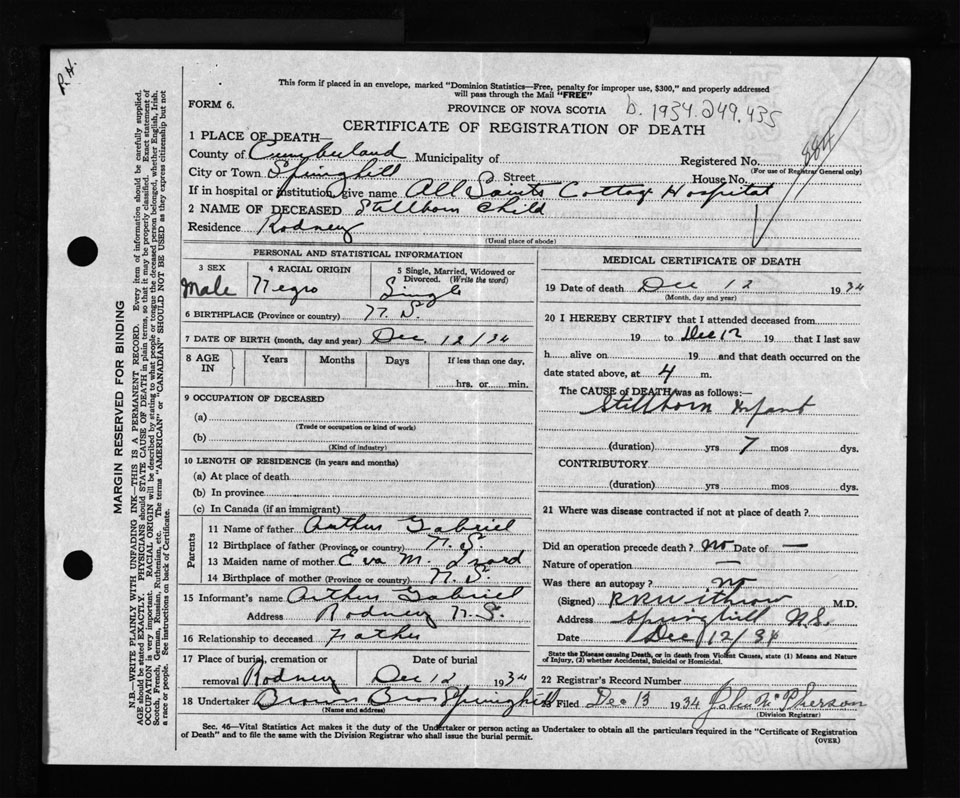 R.H.
This form if placed in an envelope, marked "Dominion Statistics—Free, penalty for improper use, $300," and properly addressed
will pass through the Mail "FREE"
FORM 6.
PROVINCE OF NOVA SCOTIA
b. 1934.249.435
CERTIFICATE OF REGISTRATION OF DEATH
884
1 PLACE OF DEATH—
County of Cumberland Municipality of Registered No.
(For use of Registrar General only)
City or Town Springhill Street House No.
If in hospital or institution, give name All Saints Cottage Hospital
2 NAME OF DECEASED Stillborn Child
Residence Rodney
(Usual place of abode)
PERSONAL AND STATISTICAL INFORMATION
3 SEX
Male
4 RACIAL ORIGIN
Negro
5 Single, Married, Widowed or
Divorced. (Write the word)
Single
6 BIRTHPLACE (Province or country) N.S.
7 DATE OF BIRTH (month, day and year) Dec. 12/34
8 AGE IN
Years Months Days If less than one day,
hrs. or min.
9 OCCUPATION OF DECEASED
(a)
(Trade or occupation or kind of work)
(b)
(Kind of industry)
10 LENGTH OF RESIDENCE (in years and months)
(a) At place of death
(b) In province
(c) In Canada (if an immigrant)
Parents
11 Name of father Arthur Gabriel
12 Birthplace of father (Province or country) N.S.
13 Maiden name of mother Eva M.
14 Birthplace of mother (Province or country) N.S.
15 Informant's name Arthur Gabriel
Address Rodney N.S.
16 Relationship to deceased Father
17 Place of burial, cremation or
removal Rodney
Date of burial
Dec 12 1934
18 Undertaker Brown Bros Springhill
(Name and address)
MEDICAL CERTIFICATE OF DEATH
19 Date of death Dec 12 1934
(Month, day and year)
20 I HEREBY CERTIFY that I attended deceased from
19 to Dec 12 19 that I last saw
h alive on 19 and that death occurred on the
date stated above, at 4 m.
The CAUSE OF DEATH was as follows:—
Stillborn Infant
(duration) yrs 7 mos dys.
CONTRIBUTORY
(duration) yrs mos dys.
21 Where was disease contracted if not at place of death?
Did an operation precede death? No Date of —
Nature of operation —
Was there an autopsy? No
(Signed) R R Withrow M.D.
Address Springhill N.S.
Date Dec 12/34
State the Disease causing Death, or in death from Violent Causes, state (1) Means and Nature
of Injury, (2) whether Accidental, Suicidal or Homicidal.
22 Registrar's Record Number
23 Filed Dec 13 1934 John McPherson
(Division Registrar)
Sec. 46—Vital Statistics Act makes it the duty of the Undertaker or person acting as Undertaker to obtain all the particulars required in the "Certificate of Registration
of Death" and to file the same with the Division Registrar who shall issue the burial permit.
(OVER)
MARGIN RESERVED FOR BINDING
N.B.—WRITE PLAINLY WITH UNFADING INK—THIS IS A PERMANENT RECORD. Every item of information should be carefully supplied.
AGE should be stated EXACTLY. PHYSICIANS should STATE CAUSE OF DEATH in plain terms, so that it may be properly classified. Exact statement of
OCCUPATION is very important. RACIAL ORIGIN will be described by stating to what people or tongue the deceased person belonged, whether English, Irish,
Scotch, French, German, Russian, Ruthenian, etc. The terms "AMERICAN" or "CANADIAN" SHOULD NOT BE USED as they express citizenship but not
a race or people. See instructions on back of Certificate.